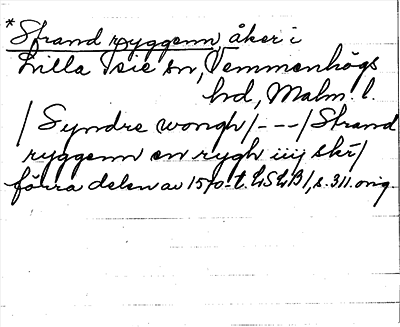 *Strand ryggenn, åker i
Lilla Isie sn, Vemmenhögs
hd, Malm. l.
/Syndre wongh/---/Strand
ryggenn en rygh iiij skr/
förra delen av 1570-t. LSLB1, s. 311. orig.